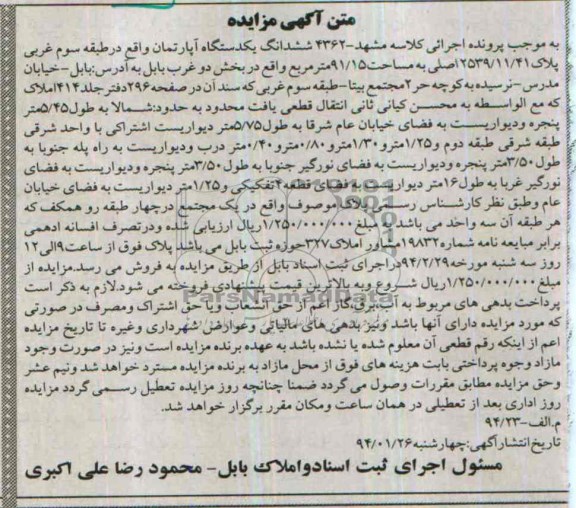 متن آگهی مزایده
به موجب پرونده اجرائی کلاسه مشهد-۴۳۶۲ ششدانگ یکدستگاه آپارتمان واقع درطبقه سوم غربی
پلاک ۲۵۳۹/۱۱/۴۱ اصلی به مساحت ۹۱/۱۵ متر مربع واقع در بخش دو غرب بابل به آدرس:بابل-خیابان
مدرس-نرسیده به کوچه حر۲مجتمع بیتا-طبقه سوم غربی که سند آن در صفحه ۲۹۶دفتر جلد ۴۱۴املاک
که مع الواسطه به محسن کیانی ثانی انتقال قطعی یافت محدود به حدود:شمالا به طول ۵/۴۵متر
پنجره ودیواریست به فضای خیابان عام شرقا به طول ۵/۷۵متر دیواریست اشتراکی با واحد شرقی
طبقه شرقی طبقه دوم و ۱/۲۵مترو ۱/۳۰مترو ۰/۸۰مترو ۰/۴۰متر درب ودیواریست به راه پله جنوبا به
طول ۳/۵۰متر پنجره ودیواریست به فضای نورگیر جنوبا به طول ۳/۵۰متر پنجره ودیواریست به فضای
نورگیر غربا به طول ۱۶متر دیواریست به فضای قطعه ۴تفکیکی و ۱/۲۵متر دیواریست به فضای خیابان
عام وطبق نظر کارشناس رسمی پلاک موصوف واقع در یک مجتمع درچهار طبقه رو همکف که
هر طبقه آن سه واحد می باشد به مبلغ ۱/۲۵۰/۰۰۰/۰۰۰ریال ارزیابی شده ودرتصرف افسانه ادهمی
برابر مبایعه نامه شماره ۱۹۸۳۲مشاور املاک ۳۲۷حوزه ثبت بابل می باشد پلاک فوق از ساعت ۹الی ۱۲
روز سه شنبه مورخه ۹۴/۲/۲۹دراجرای ثبت اسناد بابل از طریق مزایده به فروش می رسد.مزایده از
مبلغ ۱/۲۵۰/۰۰۰/۰۰۰ریال شروع وبه بالاترین قیمت پیشنهادی فروخته می شود.لازم به ذکر است
پرداخت بدهی های مربوط به آب،برق،گاز اعم از حق انشعاب ویا حق اشتراک ومصرف در صورتی
که مورد مزایده دارای آنها باشد ونیز بدهی های مالیاتی وعوارض شهرداری وغیره تا تاریخ مزایده
اعم از اینکه رقم قطعی آن معلوم شده یا نشده باشد به عهده برنده مزایده است ونیز در صورت وجود
مازاد وجوه پرداختی بابت هزینه های فوق از محل مازاد به برنده مزایده مسترد خواهد شد ونیم عشر
وحق مزایده مطابق مقررات وصول می گردد ضمنا چنانچه روز مزایده تعطیل رسمی گردد مزایده
روز اداری بعد از تعطیلی در همان ساعت ومکان مقرر برگزار خواهد شد.
م.الف-۹۴/۲۳
تاریخ انتشارآگهی:چهارشنبه ۹۴/۰۱/۲۶
مسئول اجرای ثبت اسنادواملاک بابل- محمود رضا علی اکبری
ParsNamadData